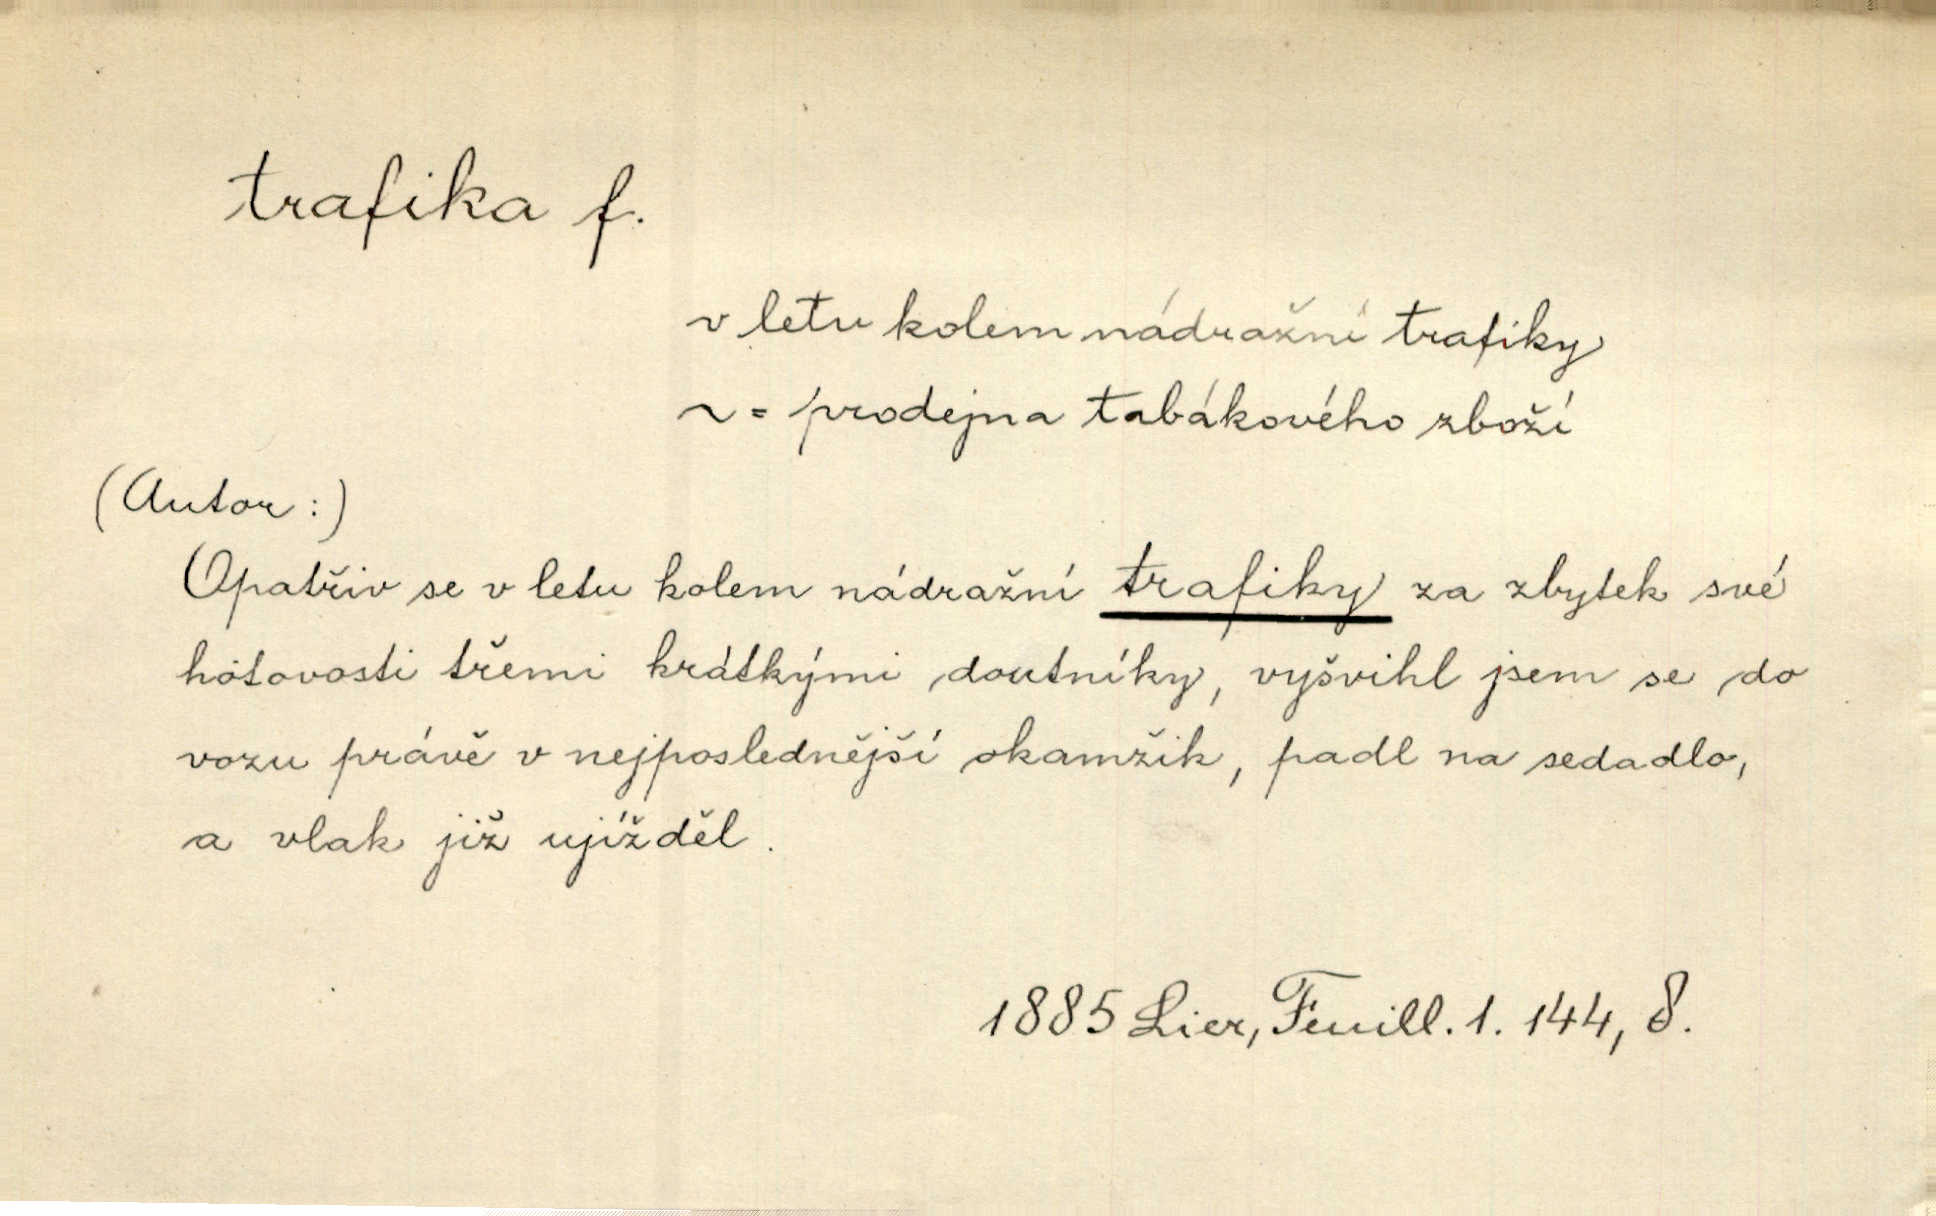 trafika f.
v letu kolem nádražní trafiky
~ = prodejna tabákového zboží
(Autor:)
Opatřiv se v letu kolem nádražní trafiky za zbytek své
hotovosti třemi krátkými doutníky, vyšvihl jsem se do
vozu právě v nejposlednější okamžik, padl na sedadlo,
a vlak již ujížděl.
1885 Lier, Feuill. 1. 144, 8.